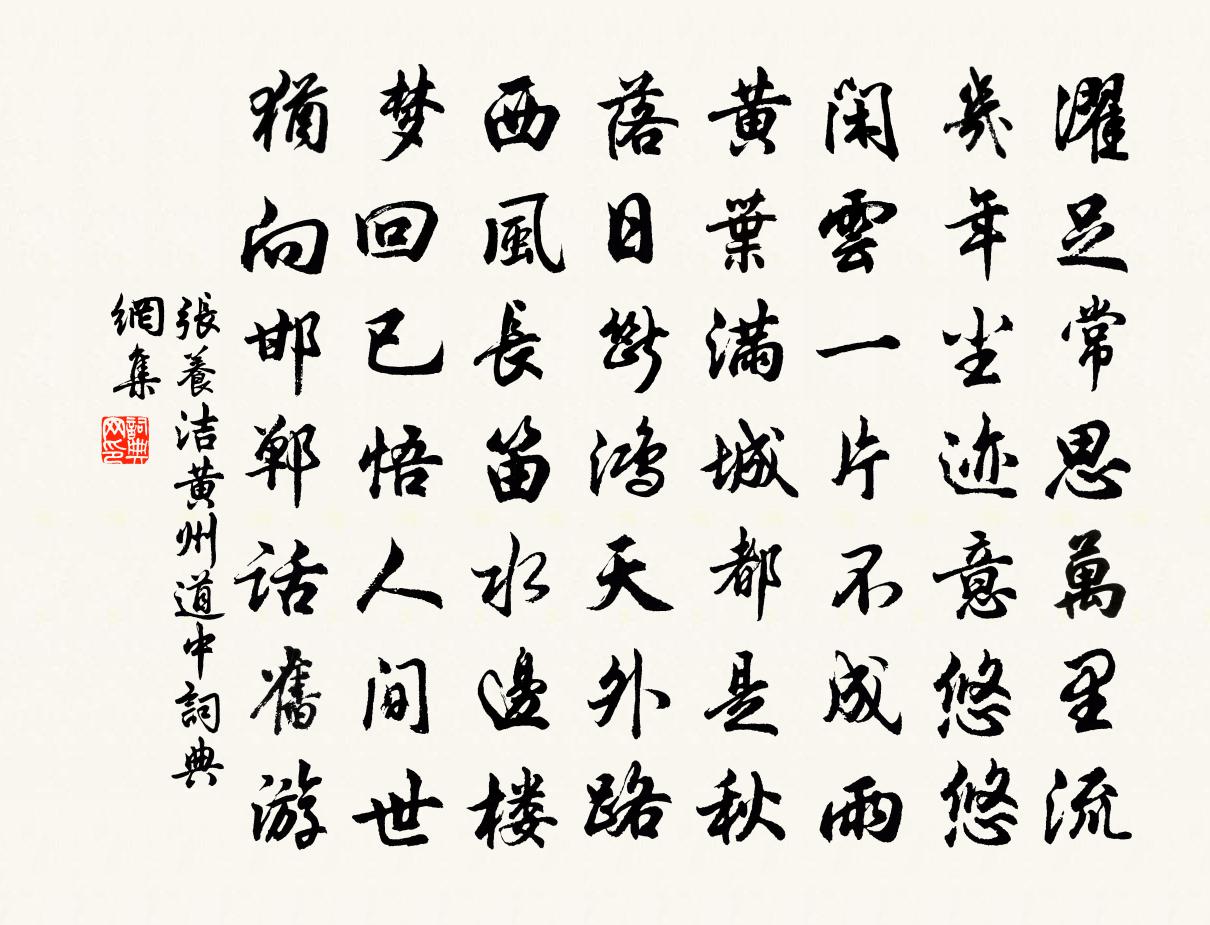 濯足常思萬里流
幾年尘迹意悠悠
閑雲一片不成雨
黃葉滿城都是秋
落日斷鴻天外路
西風長笛水邊楼
梦回已悟人间世
猶向邯郸话舊游
張養洁黃州道中詞典
網集
詞典
网印